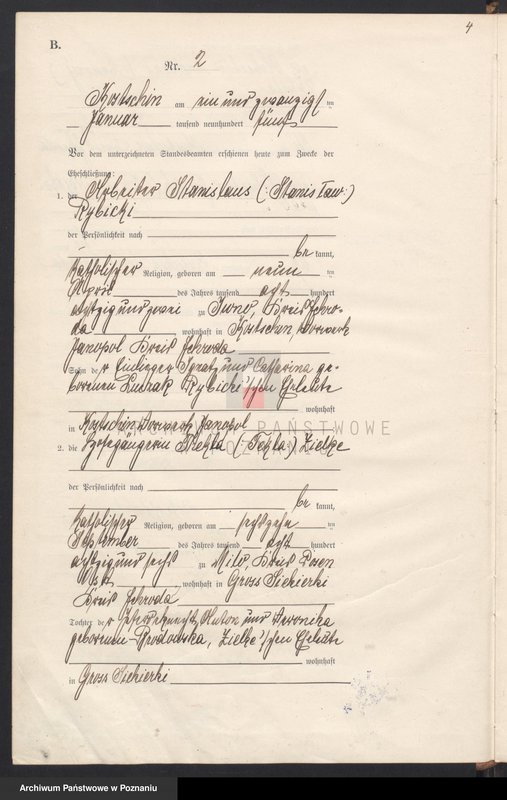 4
B.
Nr. 2
Kostschin am ein und zwanzigsten
Januar tausend neunhundert fünf
Vor dem unterzeichneten Standesbeamten erschienen heute zum Zwecke der
Eheschließung:
1. der Arbeiter Stanislaus (: Stanisław :)
Rybicki
der Persönlichkeit nach
be kannt,
katholischer Religion, geboren am neun ten
April des Jahres tausend acht hundert
achtzig und zwei zu Iwno, Kreis Schro-
da, wohnhaft in Kostschin, Vorwerk
Janopol Kreis Schroda
Sohn der Einlieger Ignatz und Catharina ge-
borenen Rybicki'schen Eheleute
wohnhaft
in Kostschin Vorwerk Janopol
PAŃSTWOWE
2. die Hofegängerin Thekla (: Tekla :) Zielke
der Persönlichkeit nach
be kannt,
katholischer Religion, geboren am sechszehn ten
September des Jahres tausend acht hundert
achtzig und sechs zu Milo, Kreis Posen
West, wohnhaft in Gross Siekierki
Kreis Schroda
Tochter der Anton und Veronika
geborenen Zielke'schen Eheleute
wohnhaft
in Gross Siekierki
Archiwum Państwowe w Poznaniu